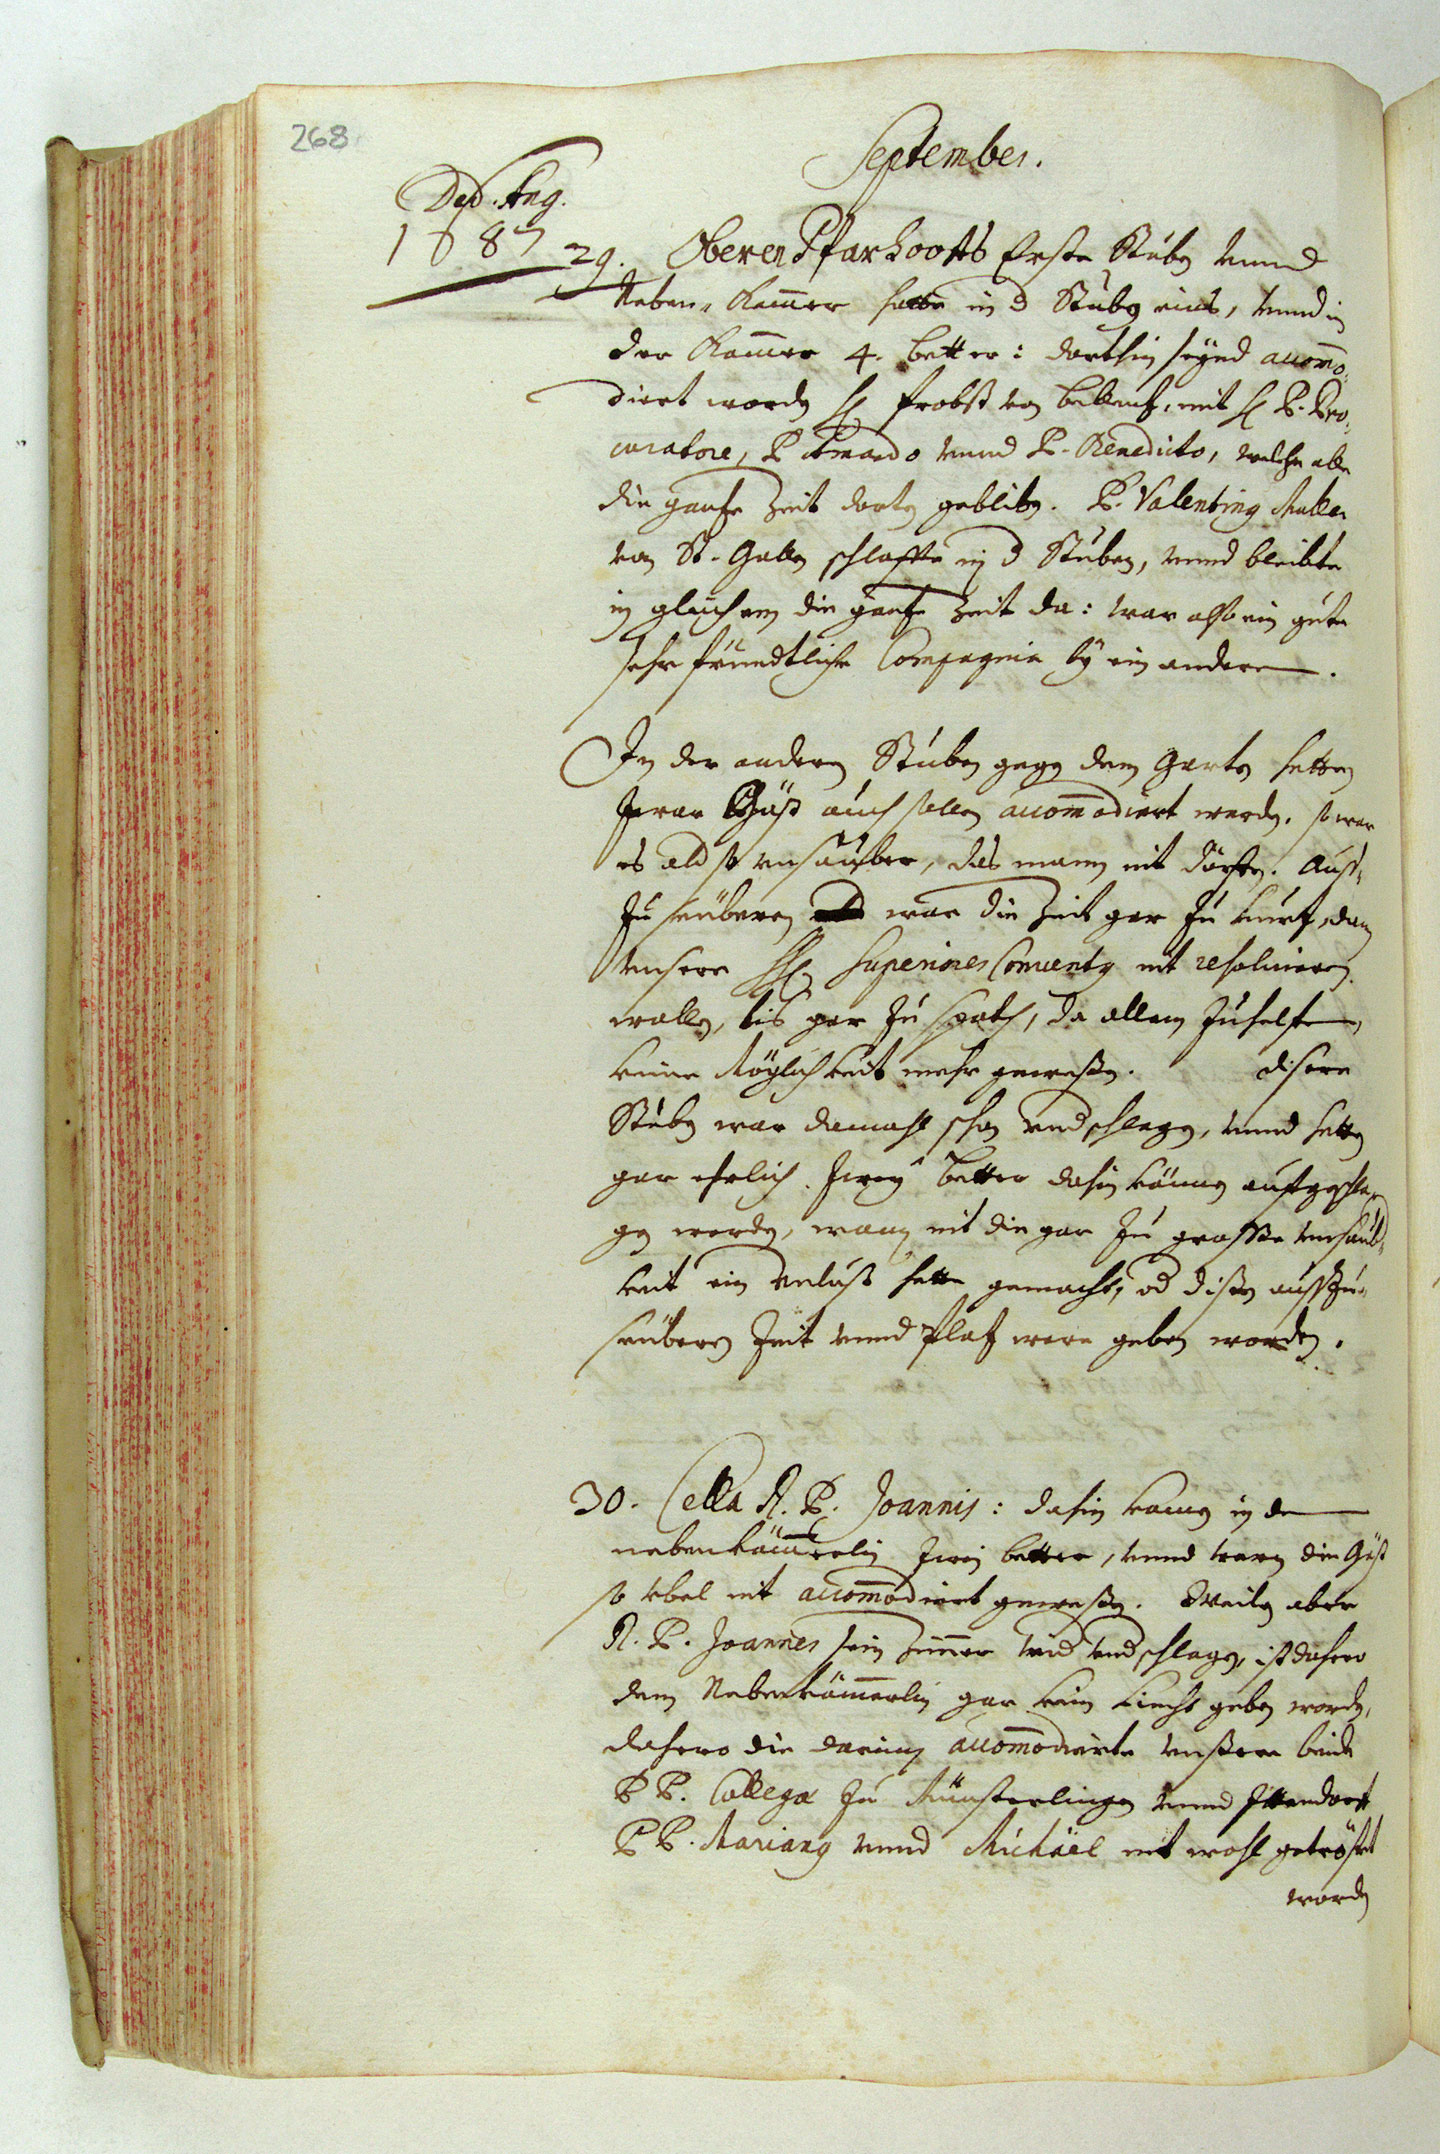 268
September.
Ded. Ang.
1687
29. Oberen Pfarhooffs Erste Stuben unnd
Neben Kam̄er hatte in d Stuben eins, unnd in
der Kam̄er 4. better: dorthin seynd accom̄o-
diert worden H. Probst von Bellentz, mit H. P. Pro-
curatore, P. Amando unnd P. Benedicto, welche alle
die gantze Zeit dorten gebliben. P. Valentin Müller
von St. Gallen schlaffte in d Stuben, unnd bleibte
in gleichem die gantze Zeit da: war also ein gute
sehr fründtliche Compagnia by ein anderen.
In der anderen Stuben gegen dem Garten hetten
zwar Gäst auch sollen accom̄odiert werden. so war
es als so unsauber, das mann nit dörffen. Auss-
zu seüberen war die Zeit gar zu kurtz, dann
unsere HH. Superiores Convents nit resolvieren
wollen, bis gar zu spath, da allem zuhelffen
keine Möglichkeit mehr gewesen. disere
Stuben war damahl schon undschlagen, unnd hetten
gar ehrlich zwey better dahin können auffgeschla-
gen werden, wann nit die gar zu grosse unsauber-
keit ein unlust hette gemacht, od disen ausszu-
seüberen Zeit unnd Platz were geben worden.
30. Cella R. P. Joannis: dahin kamen in dem
nebenkäm̄erlin zwei better, unnd waren die Gäst
so übel nit accom̄odiert gewesen. Weilen aber
R. P. Joannes sein Zim̄er und undschlagen, ist dahero
dem Nebenkäm̄erlin gar kein Liecht geben worden,
dahero die darinn accom̄odierte unsere beide
PP. Collegæ zu Münsterlingen unnd Ittendorff
PP. Marianus unnd Michäel nit wohl getröstet
worden